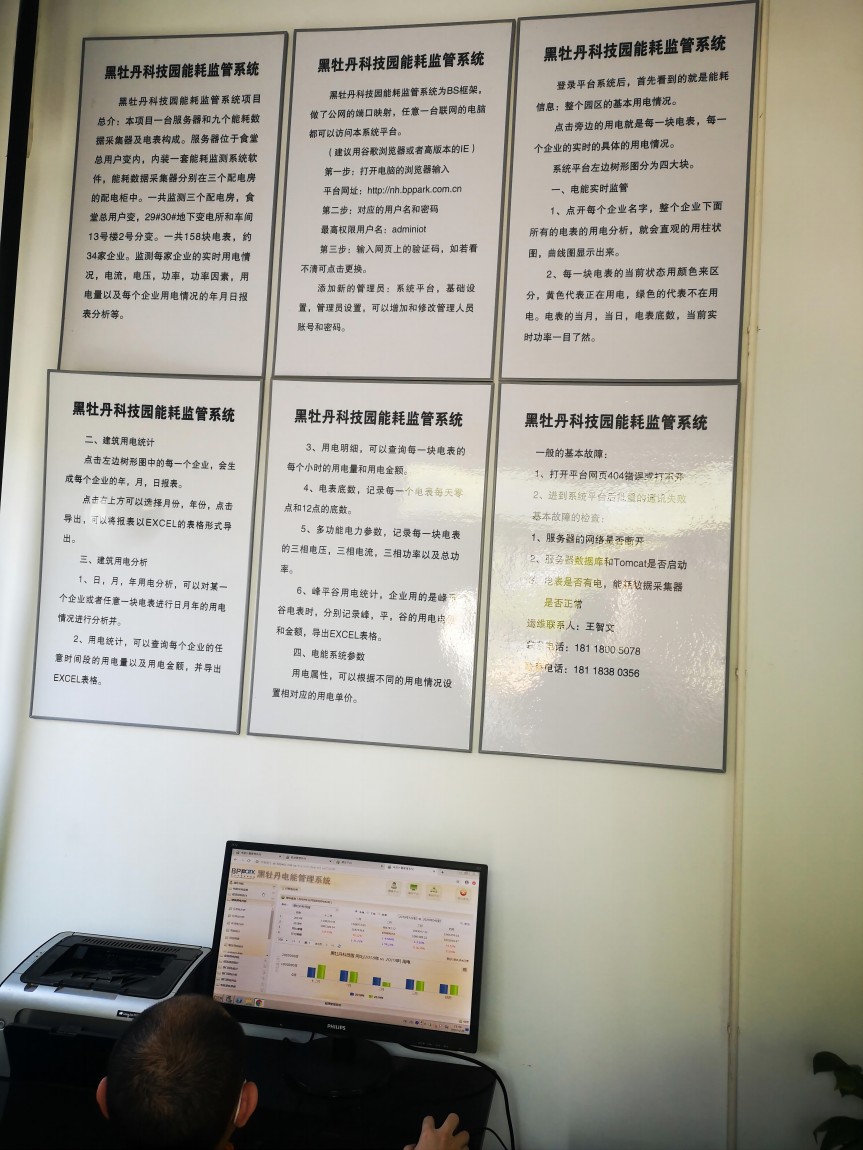 黑牡丹科技园能耗监管系统
黑牡丹科技园能耗监管系统项目
总介：本项目一台服务器和九个能耗数
据采集器及电表构成。服务器位于食堂
总用户变内，内装一套能耗监测系统软
件，能耗数据采集器分别在三个配电房
的配电柜中。一共监测三个配电房，食
堂总用户变，29#30#地下变电所和车间
13号楼2号分变。一共158块电表，约
34家企业。监测每家企业的实时用电情
况，电流，电压，功率，功率因素，用
电量以及每个企业用电情况的年月日报
表分析等。
黑牡丹科技园能耗监管系统
黑牡丹科技园能耗监管系统为BS框架，
做了公网的端口映射，任意一台联网的电脑
都可以访问本系统平台。
（建议用谷歌浏览器或者高版本的IE）
第一步：打开电脑的浏览器输入
平台网址：http://nh.bppark.com.cn
第二步：对应的用户名和密码
最高权限用户名：adminiot
第三步：输入网页上的验证码，如若看
不清可点击更换。
添加新的管理员：系统平台，基础设
置，管理员设置，可以增加和修改管理人员
账号和密码。
黑牡丹科技园能耗监管系统
登录平台系统后，首先看到的就是能耗
信息：整个园区的基本用电情况。
点击旁边的用电就是每一块电表，每一
个企业的实时的具体的用电情况。
系统平台左边树形图分为四大块。
一、电能实时监管
1、点开每个企业名字，整个企业下面
所有的电表的用电分析，就会直观的用柱状
图，曲线图显示出来。
2、每一块电表的当前状态用颜色来区
分，黄色代表正在用电，绿色的代表不在用
电。电表的当月，当日，电表底数，当前实
时功率一目了然。
黑牡丹科技园能耗监管系统
二、建筑用电统计
点击左边树形图中的每一个企业，会生
成每个企业的年，月，日报表。
点击左上方可以选择月份，年份，点击
导出，可以将报表以EXCEL的表格形式导
出。
三、建筑用电分析
1、日，月，年用电分析，可以对某一
个企业或者任意一块电表进行日月年的用电
情况进行分析并。
2、用电统计，可以查询每个企业的任
意时间段的用电量以及用电金额，并导出
EXCEL表格。
黑牡丹科技园能耗监管系统
3、用电明细，可以查询每一块电表的
每个小时的用电量和用电金额。
4、电表底数，记录每一个电表每天零
点和12点的底数。
5、多功能电力参数，记录每一块电表
的三相电压，三相电流，三相功率以及总功
率。
6、峰平谷用电统计，企业用的是峰平
谷电表时，分别记录峰，平，谷的用电
和金额，导出EXCEL表格。
四、电能系统参数
用电属性，可以根据不同的用电情况设
置相对应的用电单价。
黑牡丹科技园能耗监管系统
一般的基本故障：
1、打开平台网页404错误或打不开
2、进到系统平台后批量的通讯失败
基本故障的检查：
1、服务器的网络是否断开
2、服务器数据库和Tomcat是否启动
3、电表是否有电，能耗数据采集器
是否正常
运维联系人：王智文
电话：181 1800 5078
电话：181 1838 0356
黑牡丹电能管理系统
PHILIPS